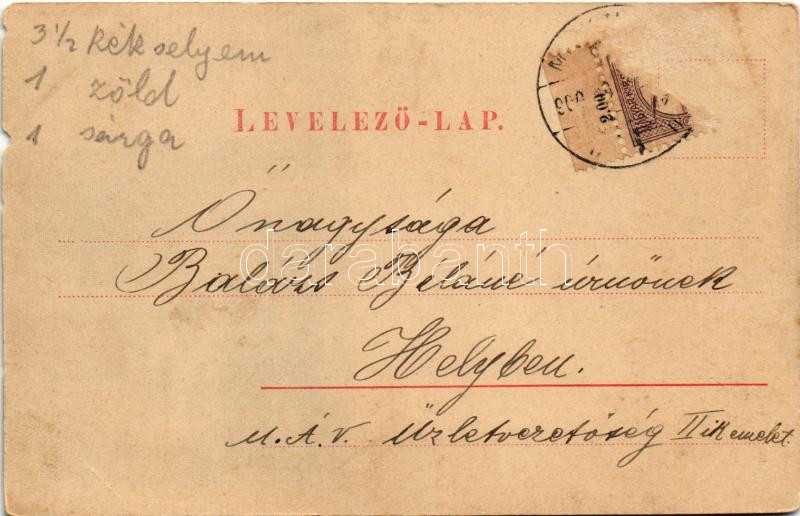 3 1/2 kék selyem
1 zöld
1 sárga
LEVELEZŐ-LAP.
Őnagysága
Balázs Béláné úrnőnek
darabanth
Helyben.
M.Á.V. Üzletvezetőség II ik emelet.